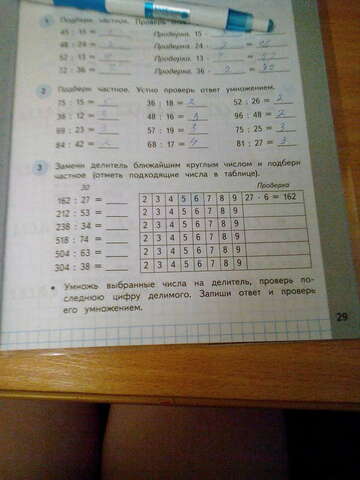 1 Подбери частное. Проверь
45 : 15 = Проверка. 15
48 : 24 = 2 Проверка. 24 · 2 =
52 : 13 = Проверка. 13 · =
72 : 36 = Проверка. 36 · 2 =
2 Подбери частное. Устно проверь ответ умножением.
75 : 15 = 5 36 : 18 = 2 52 : 26 = 2
36 : 12 = 3 48 : 16 = 3 96 : 48 = 2
69 : 23 = 3 57 : 19 = 3 75 : 25 = 3
84 : 42 = 2 68 : 17 = 4 81 : 27 = 3
3 Замени делитель ближайшим круглым числом и подбери
частное (отметь подходящие числа в таблице).
30 Проверка
162 : 27 = 2 3 4 5 6 7 8 9 27 · 6 = 162
212 : 53 = 2 3 4 5 6 7 8 9
238 : 34 = 2 3 4 5 6 7 8 9
518 : 74 = 2 3 4 5 6 7 8 9
504 : 63 = 2 3 4 5 6 7 8 9
304 : 38 = 2 3 4 5 6 7 8 9
• Умножь выбранные числа на делитель, проверь по-
следнюю цифру делимого. Запиши ответ и проверь
его умножением.
29